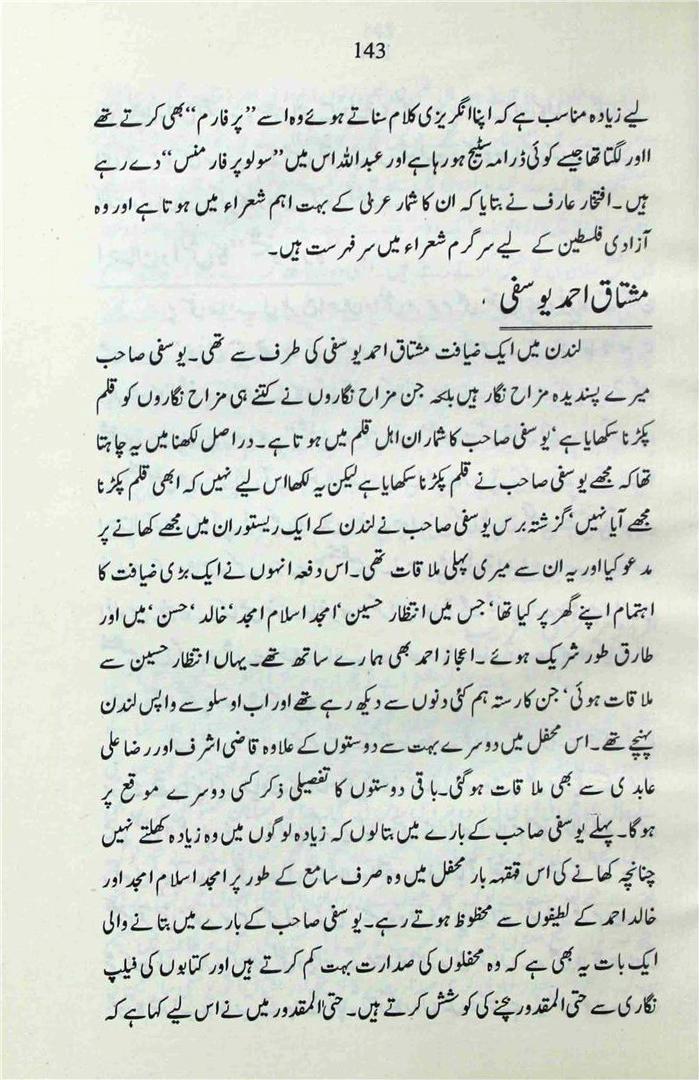 143
لیے زیادہ مناسب ہے کہ اپنا انگریزی کلام سناتے ہوئے وہ اسے ”پرفارم“ بھی کرتے تھے
ااور لگتا تھا جیسے کوئی ڈرامہ سٹیج ہو رہا ہے اور عبداللہ اس میں ”سولو پرفارمنس“ دے رہے
ہیں۔ افتخار عارف نے بتایا کہ ان کا شمار عربی کے بہت اہم شعراء میں ہوتا ہے اور وہ
آزادی فلسطین کے لیے سرگرم شعراء میں سرفہرست ہیں۔
مشتاق احمد یوسفی
لندن میں ایک ضیافت مشتاق احمد یوسفی کی طرف سے تھی۔ یوسفی صاحب
میرے پسندیدہ مزاح نگار ہیں بلکہ جن مزاح نگاروں نے کتنے ہی مزاح نگاروں کو قلم
پکڑنا سکھایا ہے‘ یوسفی صاحب کا شمار ان اہل قلم میں ہوتا ہے۔ دراصل لکھنا میں یہ چاہتا
تھا کہ مجھے یوسفی صاحب نے قلم پکڑنا سکھایا ہے لیکن یہ لکھا اس لیے نہیں کہ ابھی قلم پکڑنا
مجھے آیا نہیں‘ گزشتہ برس یوسفی صاحب نے لندن کے ایک ریستوران میں مجھے کھانے پر
مدعو کیا اور یہ ان سے میری پہلی ملاقات تھی۔ اس دفعہ انہوں نے ایک بڑی ضیافت کا
اہتمام اپنے گھر پر کیا تھا‘ جس میں انتظار حسین‘ امجد اسلام امجد‘ خالد‘ حسن‘ میں اور
طارق طور شریک ہوئے۔ اعجاز احمد بھی ہمارے ساتھ تھے۔ یہاں انتظار حسین سے
ملاقات ہوئی‘ جن کا رستہ ہم کئی دنوں سے دیکھ رہے تھے اور اب اوسلو سے واپس لندن
پہنچے تھے۔ اس محفل میں دوسرے بہت سے دوستوں کے علاوہ قاضی اشرف اور رضا علی
عابدی سے بھی ملاقات ہو گئی۔ باقی دوستوں کا تفصیلی ذکر کسی دوسرے موقع پر
ہوگا۔ پہلے یوسفی صاحب کے بارے میں بتالوں کہ زیادہ لوگوں میں وہ زیادہ کھلتے نہیں
چنانچہ کھانے کی اس قہقہہ بار محفل میں وہ صرف سامع کے طور پر امجد اسلام امجد اور
خالد احمد کے لطیفوں سے محظوظ ہوتے رہے۔ یوسفی صاحب کے بارے میں بتانے والی
ایک بات یہ بھی ہے کہ وہ محفلوں کی صدارت بہت کم کرتے ہیں اور کتابوں کی فیلپ
نگاری سے حتی المقدور بچنے کی کوشش کرتے ہیں۔ حتیٰ المقدور میں نے اس لیے کہا ہے کہ